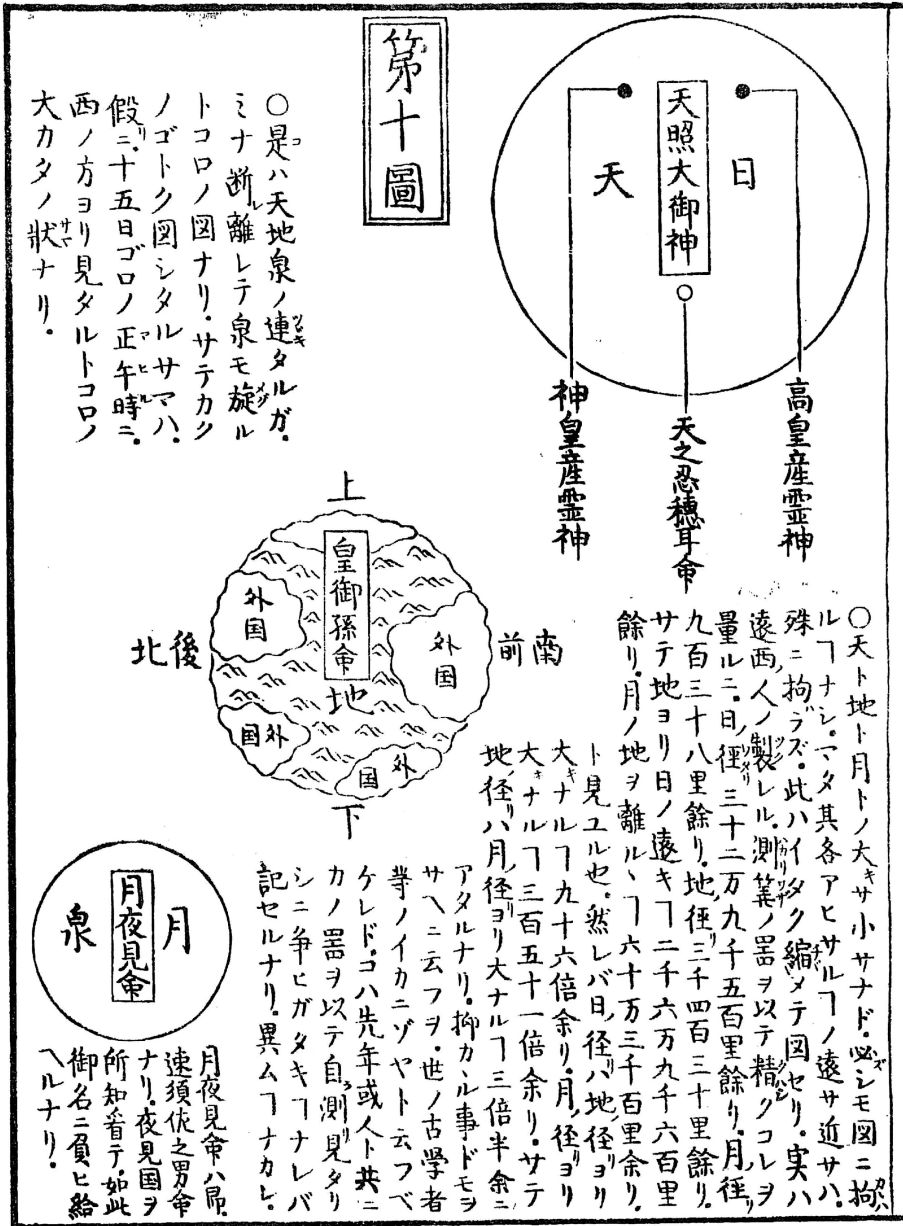 日
天照大御神
天
高皇産霊神
天之忍穂耳命
神皇産霊神
第十圖
○是ハ天地泉ノ連タルガ.
ミナ断離レテ泉モ旋ル
トコロノ図ナリ.サテカク
ノゴトク図シタルサマハ.
假ニ.十五日ゴロノ正午時ニ.
西ノ方ヨリ見タルトコロノ
大カタノ状ナリ.
上
皇御孫命
地
外国
外国
外国
外国
前南
北後
下
○天ト地ト月トノ大キサ小サナド.必シモ図ニ拘
ルヿナシ.マタ其各アヒサルヿノ遠サ近サハ.
殊ニ拘ラズ.此ハイタク縮メテ図セリ.実ハ
遠西人ノ製レル.測筭ノ噐ヲ以テ精クコレヲ
量ルニ.日徑三十二万九千五百里餘リ.月徑
九百三十八里餘リ.地徑三千四百三十里餘リ.
サテ地ヨリ日ノ遠キヿ二千六万九千六百里
餘リ.月ノ地ヲ離ルヽヿ六十万三千百里余リ.
ト見ユル也.然レバ日径ハ地径ヨリ
大キナルヿ九十六倍余リ.月径ヨリ
大キナルヿ三百五十一倍余リ.サテ
地径ハ月径ヨリ大ナルヿ三倍半余ニ
アタルナリ.抑カヽル事ドモヲ
サヘニ云フヲ.世ノ古学者
等ノイカニゾヤト云フベ
ケレド.コハ先年或人ト共ニ
カノ噐ヲ以テ自測見タリ
シニ争ヒガタキヿナレバ
記セルナリ.異ムヿナカレ.
月
月夜見命
泉
月夜見命ハ即.
速須佐之男命
ナリ.夜見国ヲ
所知看テ.如此
御名ニ負ヒ給
ヘルナリ.